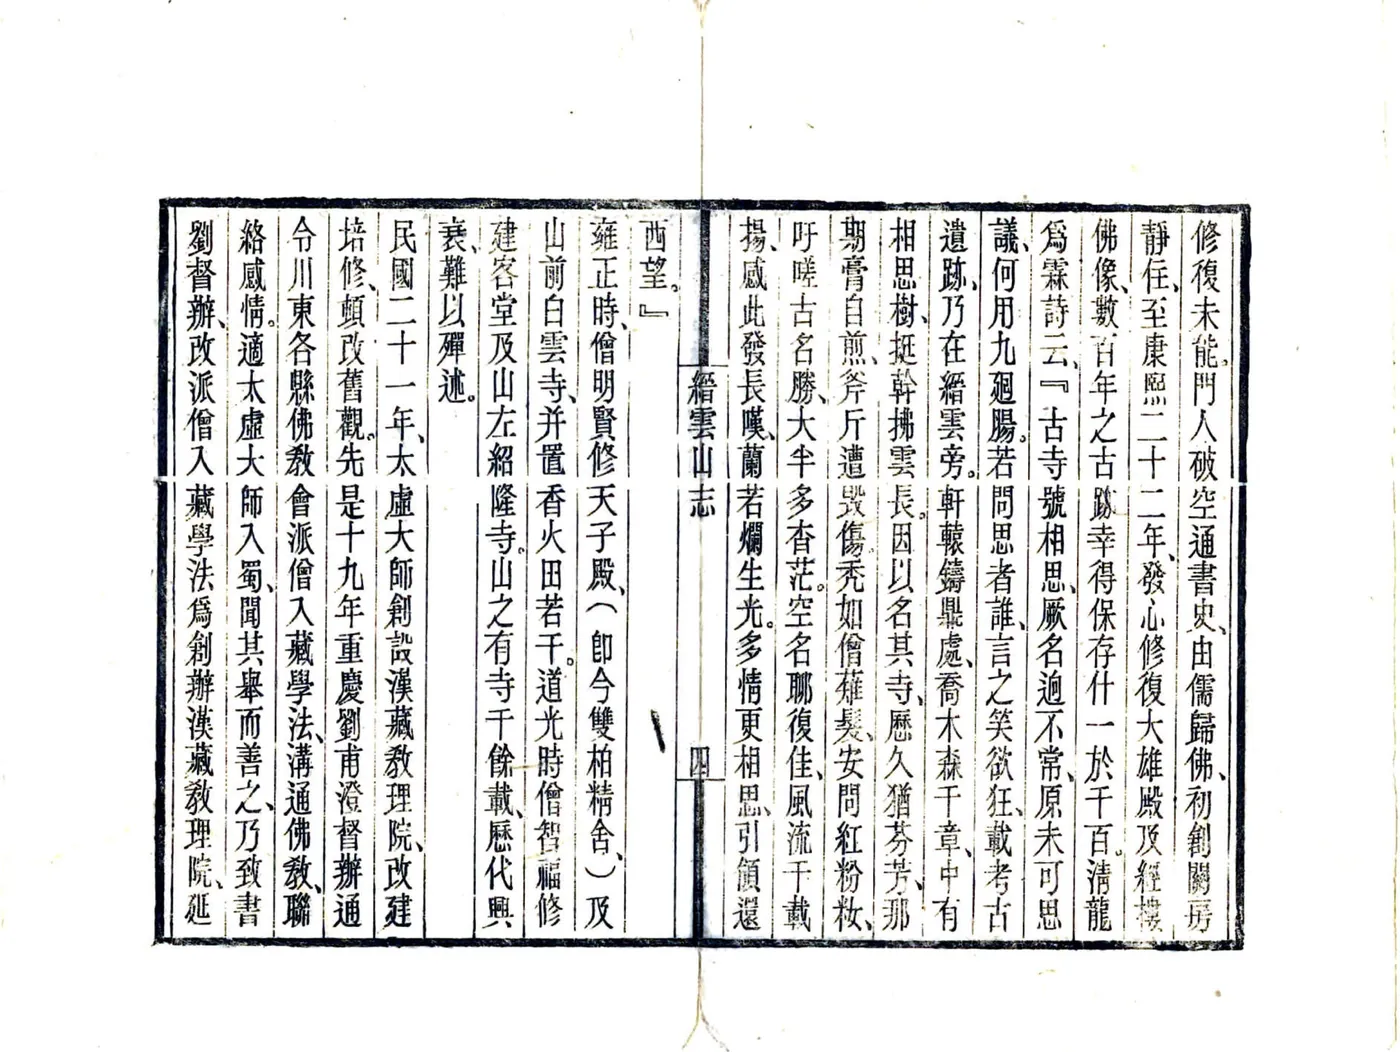 修復未能。門人破空通書史、由儒歸佛、初創關房
靜住、至康熙二十二年、發心修復大雄殿及經樓
佛像、數百年之古跡幸得保存什一於千百。清龍
爲霖詩云、『古寺號相思、厥名逈不常、原未可思
議、何用九廻腸。若問思者誰、言之笑欲狂、載考古
遺跡、乃在縉雲旁。軒轅鑄鼎處、喬木森千章、中有
相思樹、挺幹拂雲長。因以名其寺、歷久猶芬芳、那
期膏自煎、斧斤遭毀傷。禿如僧薙髮、安問紅粉妝、
吁嗟古名勝、大半多杳茫。空名聊復佳、風流千載
揚、感此發長嘆、蘭若爛生光。多情更相思、引領還
縉雲山志
四
西望。』
雍正時、僧明賢修天子殿、（卽今雙柏精舍、）及
山前白雲寺、并置香火田若干。道光時僧智福修
建客堂及山左紹隆寺。山之有寺千餘載、歷代興
衰、難以殫述。
民國二十一年、太虛大師創設漢藏敎理院、改建
培修、頓改舊觀。先是十九年重慶劉甫澄督辦通
令川東各縣佛敎會派僧入藏學法、溝通佛敎、聯
絡感情。適太虛大師入蜀、聞其舉而善之、乃致書
劉督辦、改派僧入藏學法爲創辦漢藏敎理院、延